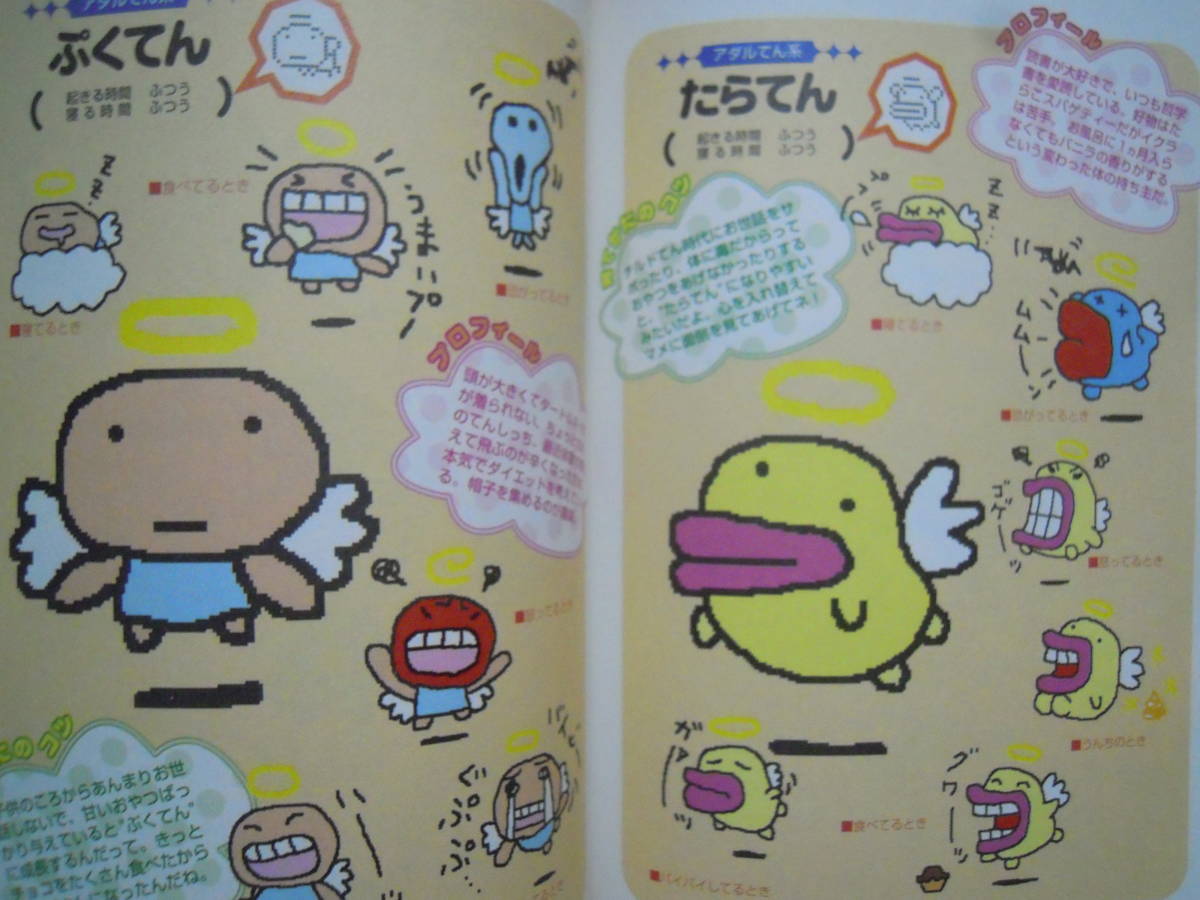 アダルてん系
ぷくてん
起きる時間 ふつう
寝る時間 ふつう
■食べてるとき
■寝てるとき
うまいプー
プロフィール
頭が大きくてタートル
が着られない、ちょっと
のてんしっち。最近
えて飛ぶのが辛くなった
本気でダイエットを考え
る。帽子を集めるのが趣味。
■怒ってるとき
のコツ
子供のころからあんまりお世
話しないで、甘いおやつばっ
かり与えていると"ぷくてん"
に成長するんだって。きっと
チョコをたくさん食べたから
になったんだね。
アダルてん系
たらてん
起きる時間 ふつう
寝る時間 ふつう
プロフィール
読書が大好きで、いつも哲学
書を愛読している。好物はた
らこスパゲティーだがイクラ
は苦手。お風呂に1ヵ月入ら
なくてもバニラの香りがする
という変わった体の持ち主だ。
のコツ
チルドてん時代にお世話をサ
ボったり、体に毒だからって
おやつをあげなかったりする
と、"たらてん"になりやすい
みたいだよ。心を入れ替えて
マメに面倒を見てあげてネ!
ZZ…
■寝てるとき
ムムーン
■怒ってるとき
■うんちのとき
■食べてるとき
グワーッ
■バイバイしてるとき